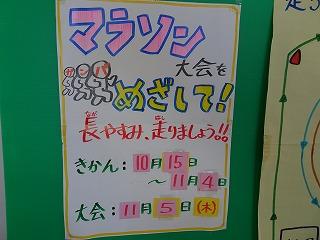 マラソン
大会を
ガンバ
めざして!
長やすみ、走りましょう!!
なが
はし
きかん:10月15日
～11月4日
大会:11月5日(木)
走